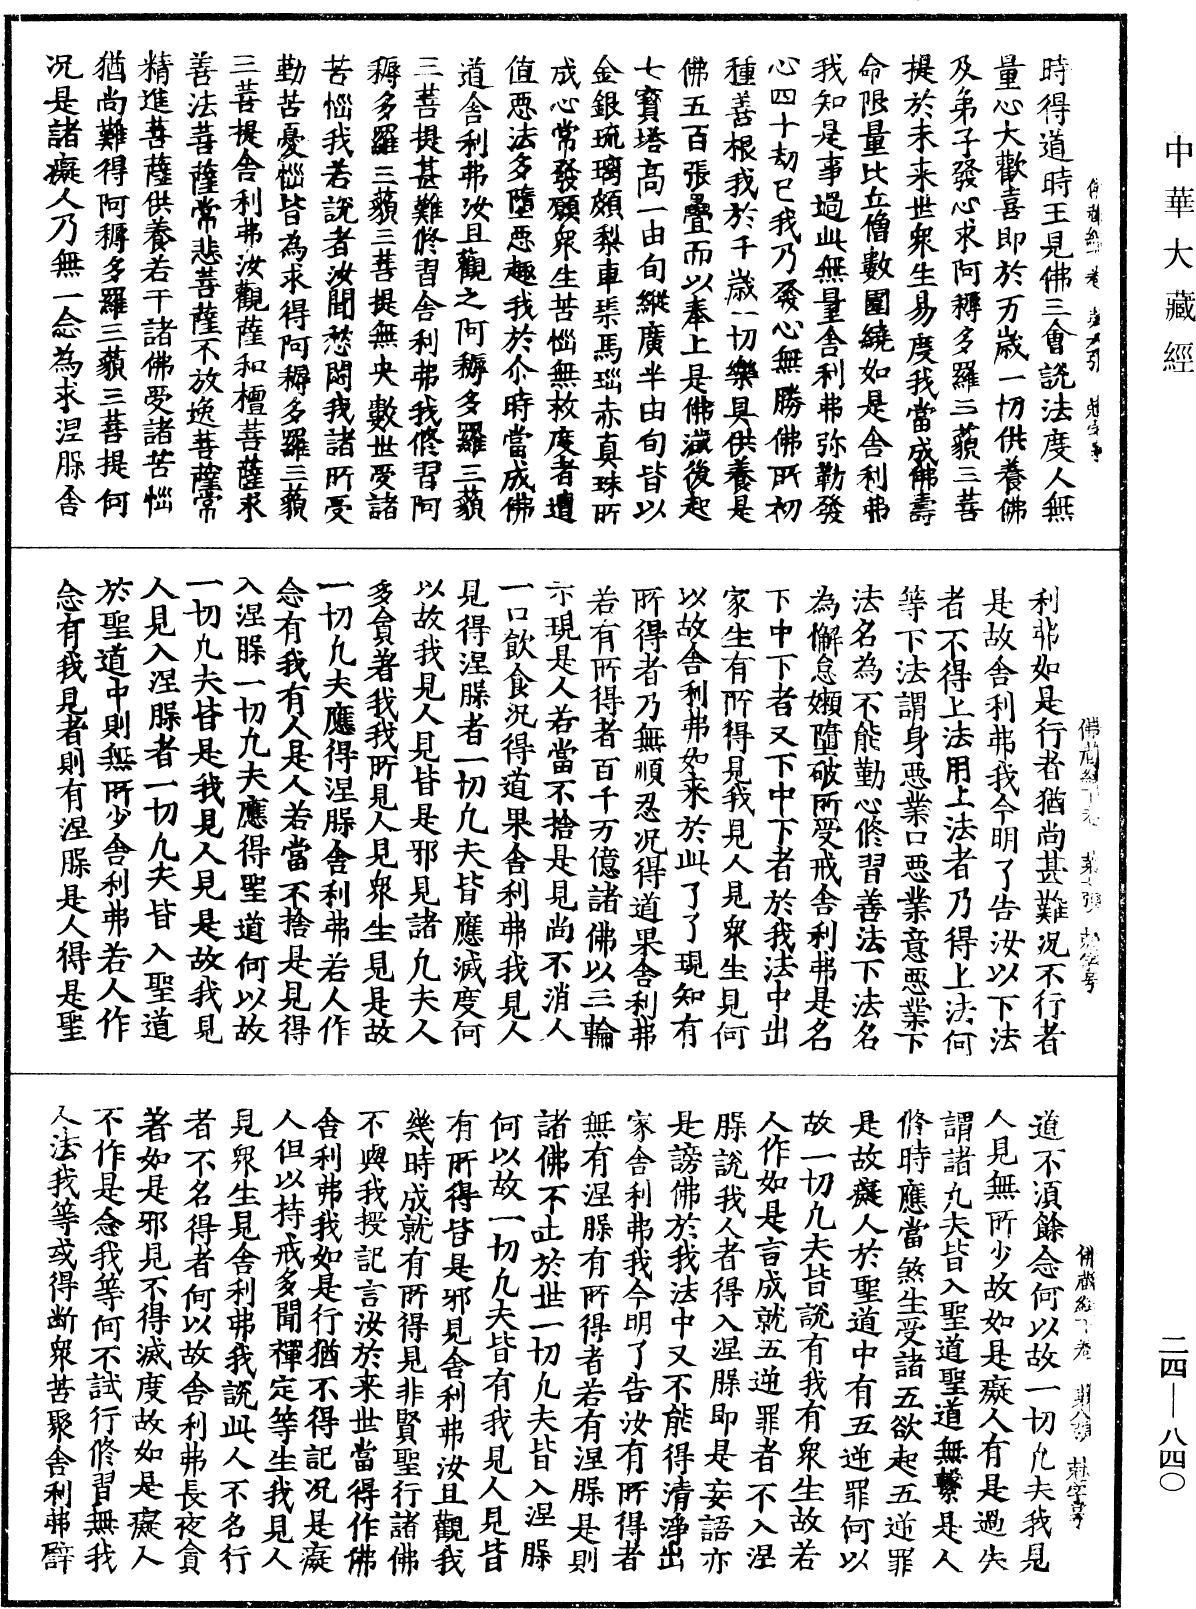 中華大藏經
二四—八四〇
時得道時王見佛三會說法度人無
量心大歡喜即於万歲一切供養佛
及弟子發心求阿耨多羅三藐三菩
提於未来世眾生易度我當成佛壽
命限量比丘僧數圍繞如是舍利弗
我知是事過此無量舍利弗弥勒發
心四十劫已我乃發心無勝佛所初
種善根我於千歲一切樂具供養是
佛五百張疊而以奉上是佛滅後起
七寶塔高一由旬縱廣半由旬皆以
金銀琉璃頗梨車𤦲馬瑙赤真珠所
成心常發願眾生苦惱無救度者遭
值惡法多墮惡趣我於尒時當成佛
道舍利弗汝且觀之阿耨多羅三藐
三菩提甚難修習舍利弗我修習阿
耨多羅三藐三菩提無央數世受諸
苦惱我若說者汝聞愁悶我諸所受
勤苦憂惱皆為求得阿耨多羅三藐
三菩提舍利弗汝觀薩和檀菩薩求
善法菩薩常悲菩薩不放逸菩薩常
精進菩薩供養若干諸佛受諸苦惱
猶尚難得阿耨多羅三藐三菩提何
况是諸癡人乃無一念為求涅槃舍
利弗如是行者猶尚甚難况不行者
是故舍利弗我今明了告汝以下法
者不得上法用上法者乃得上法何
等下法謂身惡業口惡業意惡業下
法名為不能勤心修習善法下法名
為懈怠嬾墮破所受戒舍利弗是名
下中下者又下中下者於我法中出
家生有所得見我見人見眾生見何
以故舍利弗如来於此了了現知有
所得者乃無順忍况得道果舍利弗
若有所得者百千万億諸佛以三輪
示現是人若當不捨是見尚不消人
一口飲食況得道果舍利弗我見人
見得涅槃者一切凡夫皆應滅度何
以故我見人見皆是邪見諸凡夫人
多貪著我我所見人見眾生見是故
一切凡夫應得涅槃舍利弗若人作
念有我有人是人若當不捨是見得
入涅槃一切凡夫應得聖道何以故
一切凡夫皆是我見人見是故我見
人見入涅槃者一切凡夫皆入聖道
於聖道中則無所少舍利弗若人作
念有我見者則有涅槃是人得是聖
道不須餘念何以故一切凡夫我見
人見無所少故如是癡人有是過失
謂諸凡夫皆入聖道聖道無繫是人
修時應當煞生受諸五欲起五逆罪
是故癡人於聖道中有五逆罪何以
故一切凡夫皆說有我有眾生故若
人作如是言成就五逆罪者不入涅
槃說我人者得入涅槃即是妄語亦
是謗佛於我法中又不能得清淨出
家舍利弗我今明了告汝有所得者
無有涅槃有所得者若有涅槃是則
諸佛不出於世一切凡夫皆入涅槃
何以故一切凡夫皆有我見人見皆
有所得皆是邪見舍利弗汝且觀我
幾時成就有所得見非賢聖行諸佛
不與我授記言汝於来世當得作佛
舍利弗我如是行猶不得記况是癡
人但以持戒多聞禪定等生我見人
見眾生見舍利弗我說此人不名行
者不名得者何以故舍利弗長夜貪
著如是邪見不得滅度故如是癡人
不作是念我等何不試行修習無我
人法我等或得断眾苦聚舍利弗譬